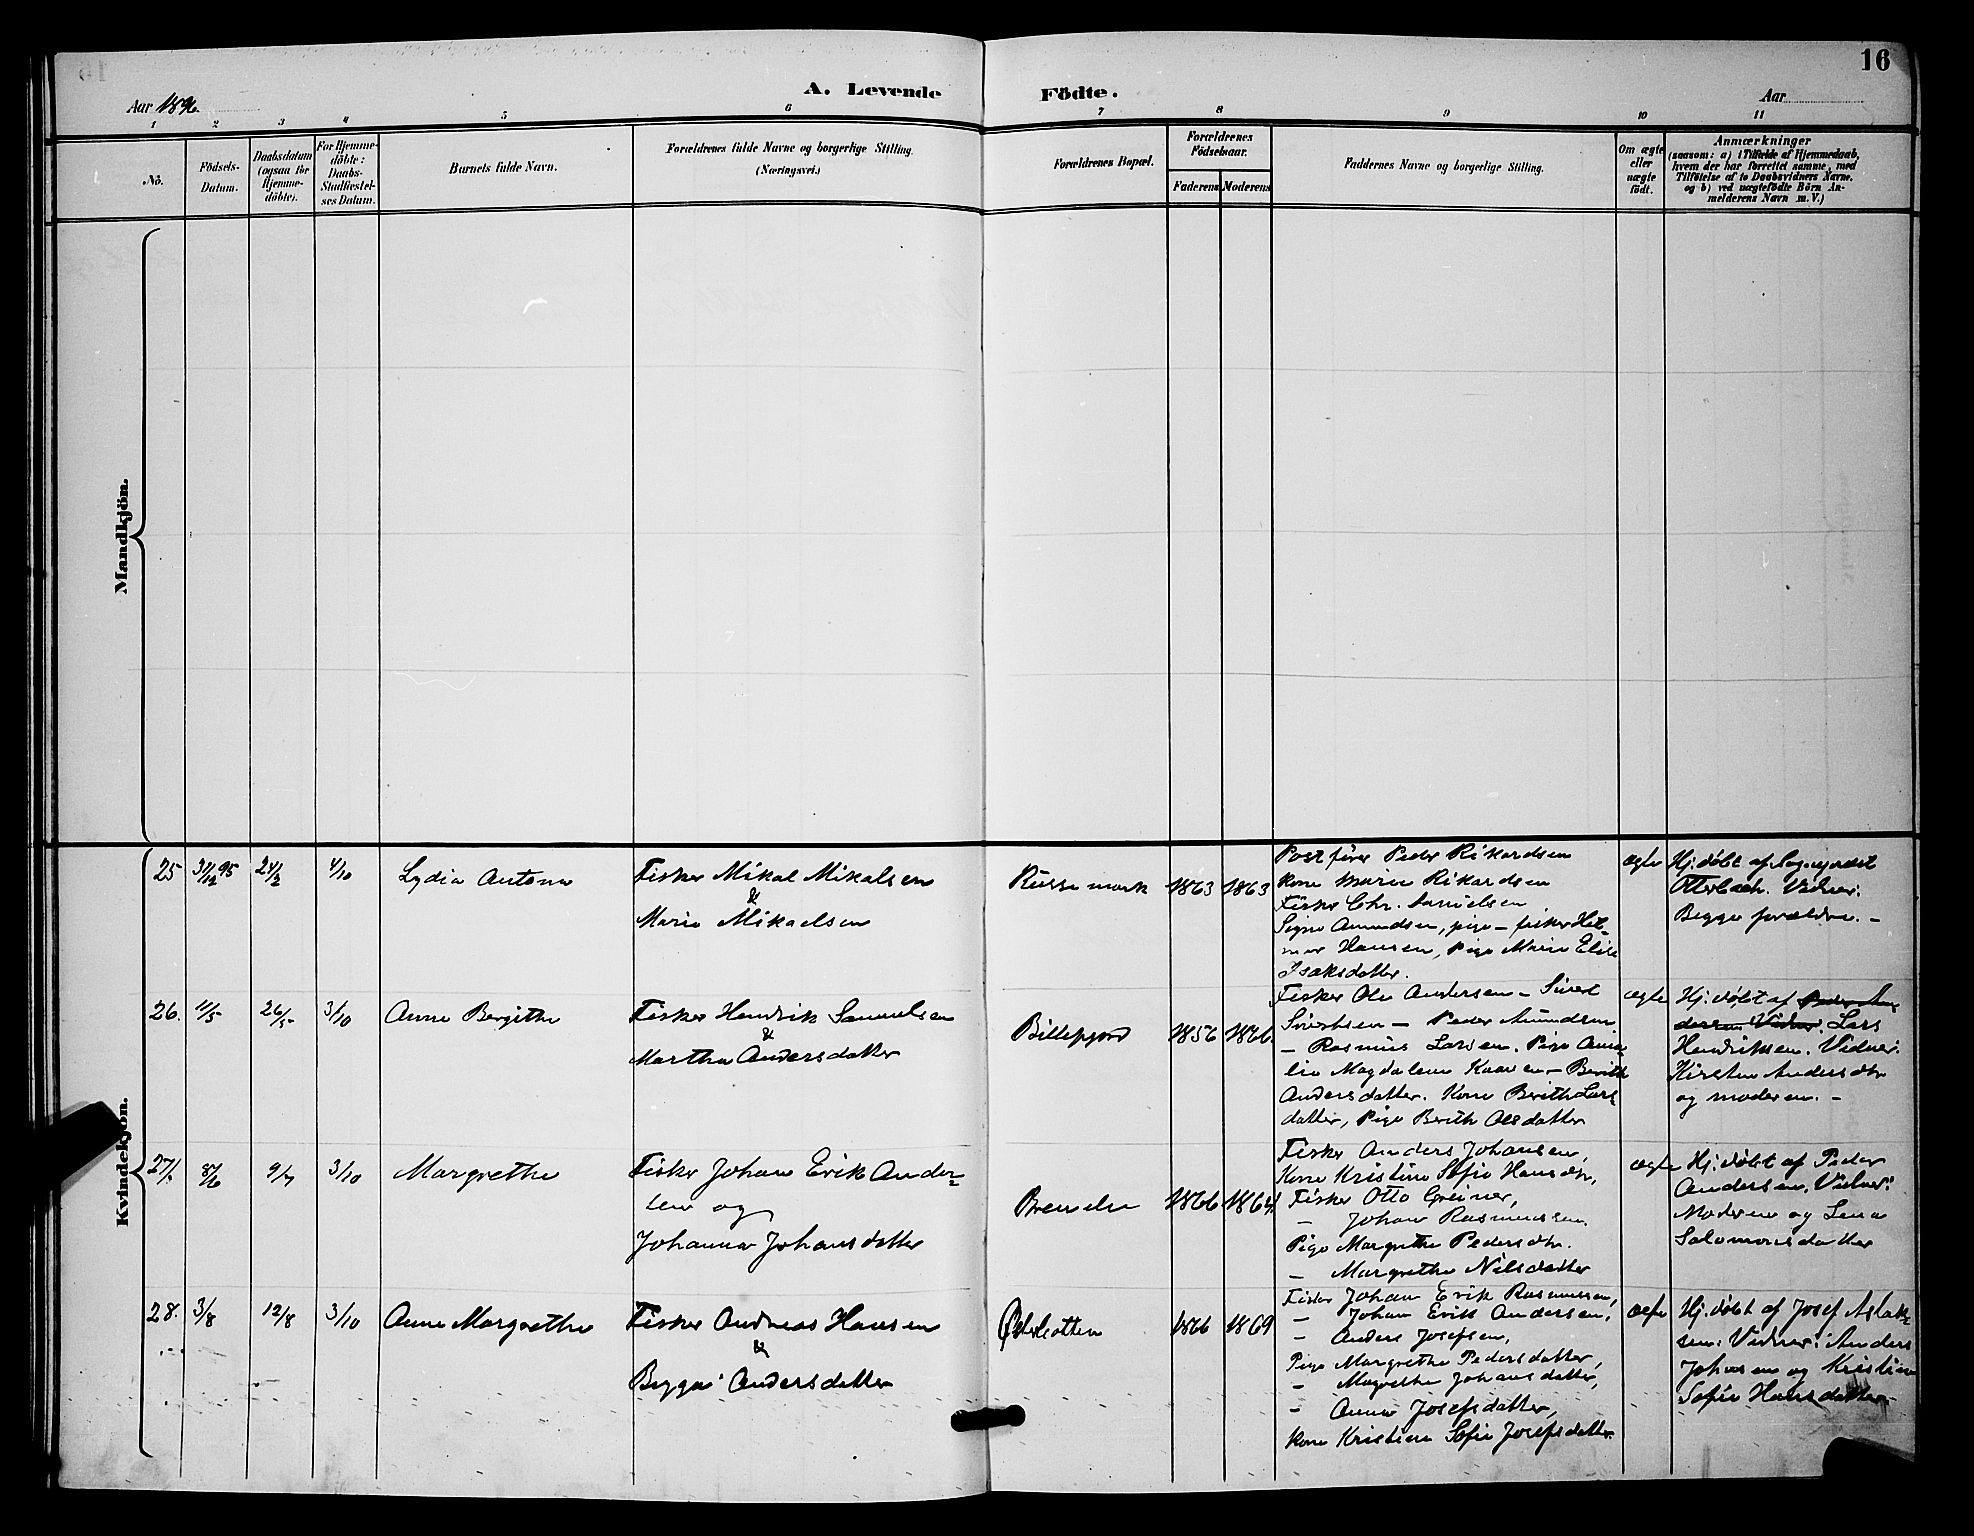 16
A. Levende Födte.
Aar 1896.
Aar
1 2 3 4 5 6 7 8 9 10 11
No.
Födsels-
Datum.
Daabsdatum
(ogsaa for
Hjemme-
döbte).
For Hjemme-
döbte:
Daabs-
Stadfæstel-
ses Datum.
Barnets fulde Navn.
Forældrenes fulde Navne og borgerlige Stilling.
(Næringsvei.)
Forældrenes Bopæl.
Forældrenes
Födselsaar.
Faderens Moderens
Faddernes Navne og borgerlige Stilling.
Om ægte
eller
uægte
födt.
Anmærkninger
(saasom: a) i Tilfælde af Hjemmedaab,
hvem der har forrettet samme, med
Tilföielse af to Daabsvidners Navne,
og b) ved uægtefödte Börn An-
melderens Navn m. V.)
Mandkjön.
Kvindekjön.
25 31/12 95 24/2 4/10 Lydia Antona
Fisker Mikal Mikalsen
&
Marie Mikaelsen
Russemark 1863 1863
Postfører Peder Rikardsen
Kone Marie Rikardsen
Fisker Chr. Danielsen
Signe Amundsen, pige – fisker Hil-
mar Hansen, Pige Marie Elise
Isaksdatter.
ægte
Hj. døbt af
Otterbech. Vidner:
Begge forældre. –
26. 11/5 26/5 3/10 Anne Bergithe
Fisker Hendrik Samuelsen
&
Martha Andersdatter
Billefjord 1856 1866.
Fisker Ole Andersen – Sivert
Sivertsen – Peder Amundsen
– Rasmus Larsen. Pige Ama-
lie Magdalene Kaaren – Berith
Andersdatter. Kone Berith Lars-
datter, Pige Berith Olsdatter
ægte
Hj. døbt af Peder An-
dersen Vidner: Lars
Henriksen. Vidner:
Kirsten Andersdtr
og moderen. –
27. 8/6 9/7 3/10 Margrethe
Fisker Johan Erik Ander-
sen og
Johanna Johansdatter
Brenelv 1866 1864.
Fisker Anders Johansen,
Kone Kristine Sofie Hansdtr,
Fisker Otto Greiner,
– Johan Rasmussen.
Pige Margrethe Pedersdtr.
– Margrethe Nilsdatter
ægte
Hj. døbt af Peder
Andersen, Vidner:
Moderen og Lena
Salomonsdatter
28. 3/8 12/8 3/10 Anne Margrethe
Fisker Andreas Hansen
&
Bigga Andersdatter
Østerbotten 1866 1869
Fisker Johan Erik Rasmussen,
– Johan Erik Andersen,
– Anders Josefsen,
Pige Margrethe Pedersdatter,
– Magrethe Johansdatter,
– Anna Josefsdatter,
Kone Kristine Sofie Josefsdatter.
ægte
Hj. døbt af Josef Aslak-
sen: Vidner: Anders
Johansen og Kristine
Sofie Hansdatter.